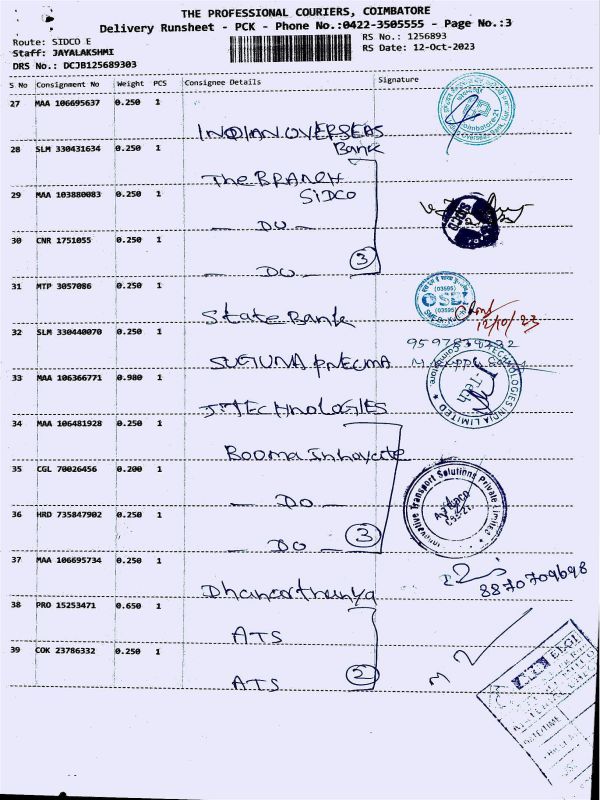 THE PROFESSIONAL COURIERS, COIMBATORE
Delivery Runsheet - PCK - Phone No.:0422-3505555 - Page No.:3
Route: SIDCO E
RS No.: 1256893
Staff: JAYALAKSHMI
RS Date: 12-Oct-2023
DRS No.: DCJB125689303
S No Consignment No Weight PCS Consignee Details Signature
27 MAA 106695637 0.250 1
INDIAN OVERSEAS
Bank
28 SLM 330431634 0.250 1
The BRANCH
SIDCO
29 MAA 103880083 0.250 1
— DO —
30 CNR 1751055 0.250 1
— DO —
3
31 MTP 3057086 0.250 1
State Bank
(03595)
SBI
(03595)
12/10/23
32 SLM 330440070 0.250 1
SUGUNA PNECMA
33 MAA 106366771 0.980 1
JTTECHNOLOGIES
TECHNOLOGIES INDIA LIMITED
34 MAA 106481928 0.250 1
Rooma Inhovate
35 CGL 70026456 0.200 1
— DO —
Innovative Transport Solutions Private Limited
36 HRD 735847902 0.250 1
— DO —
3
37 MAA 106695734 0.250 1
Dhanarthunya
8870709698
38 PRO 15253471 0.650 1
ATS
39 COK 23786332 0.250 1
ATS
2
ELGI
DATE/TIME